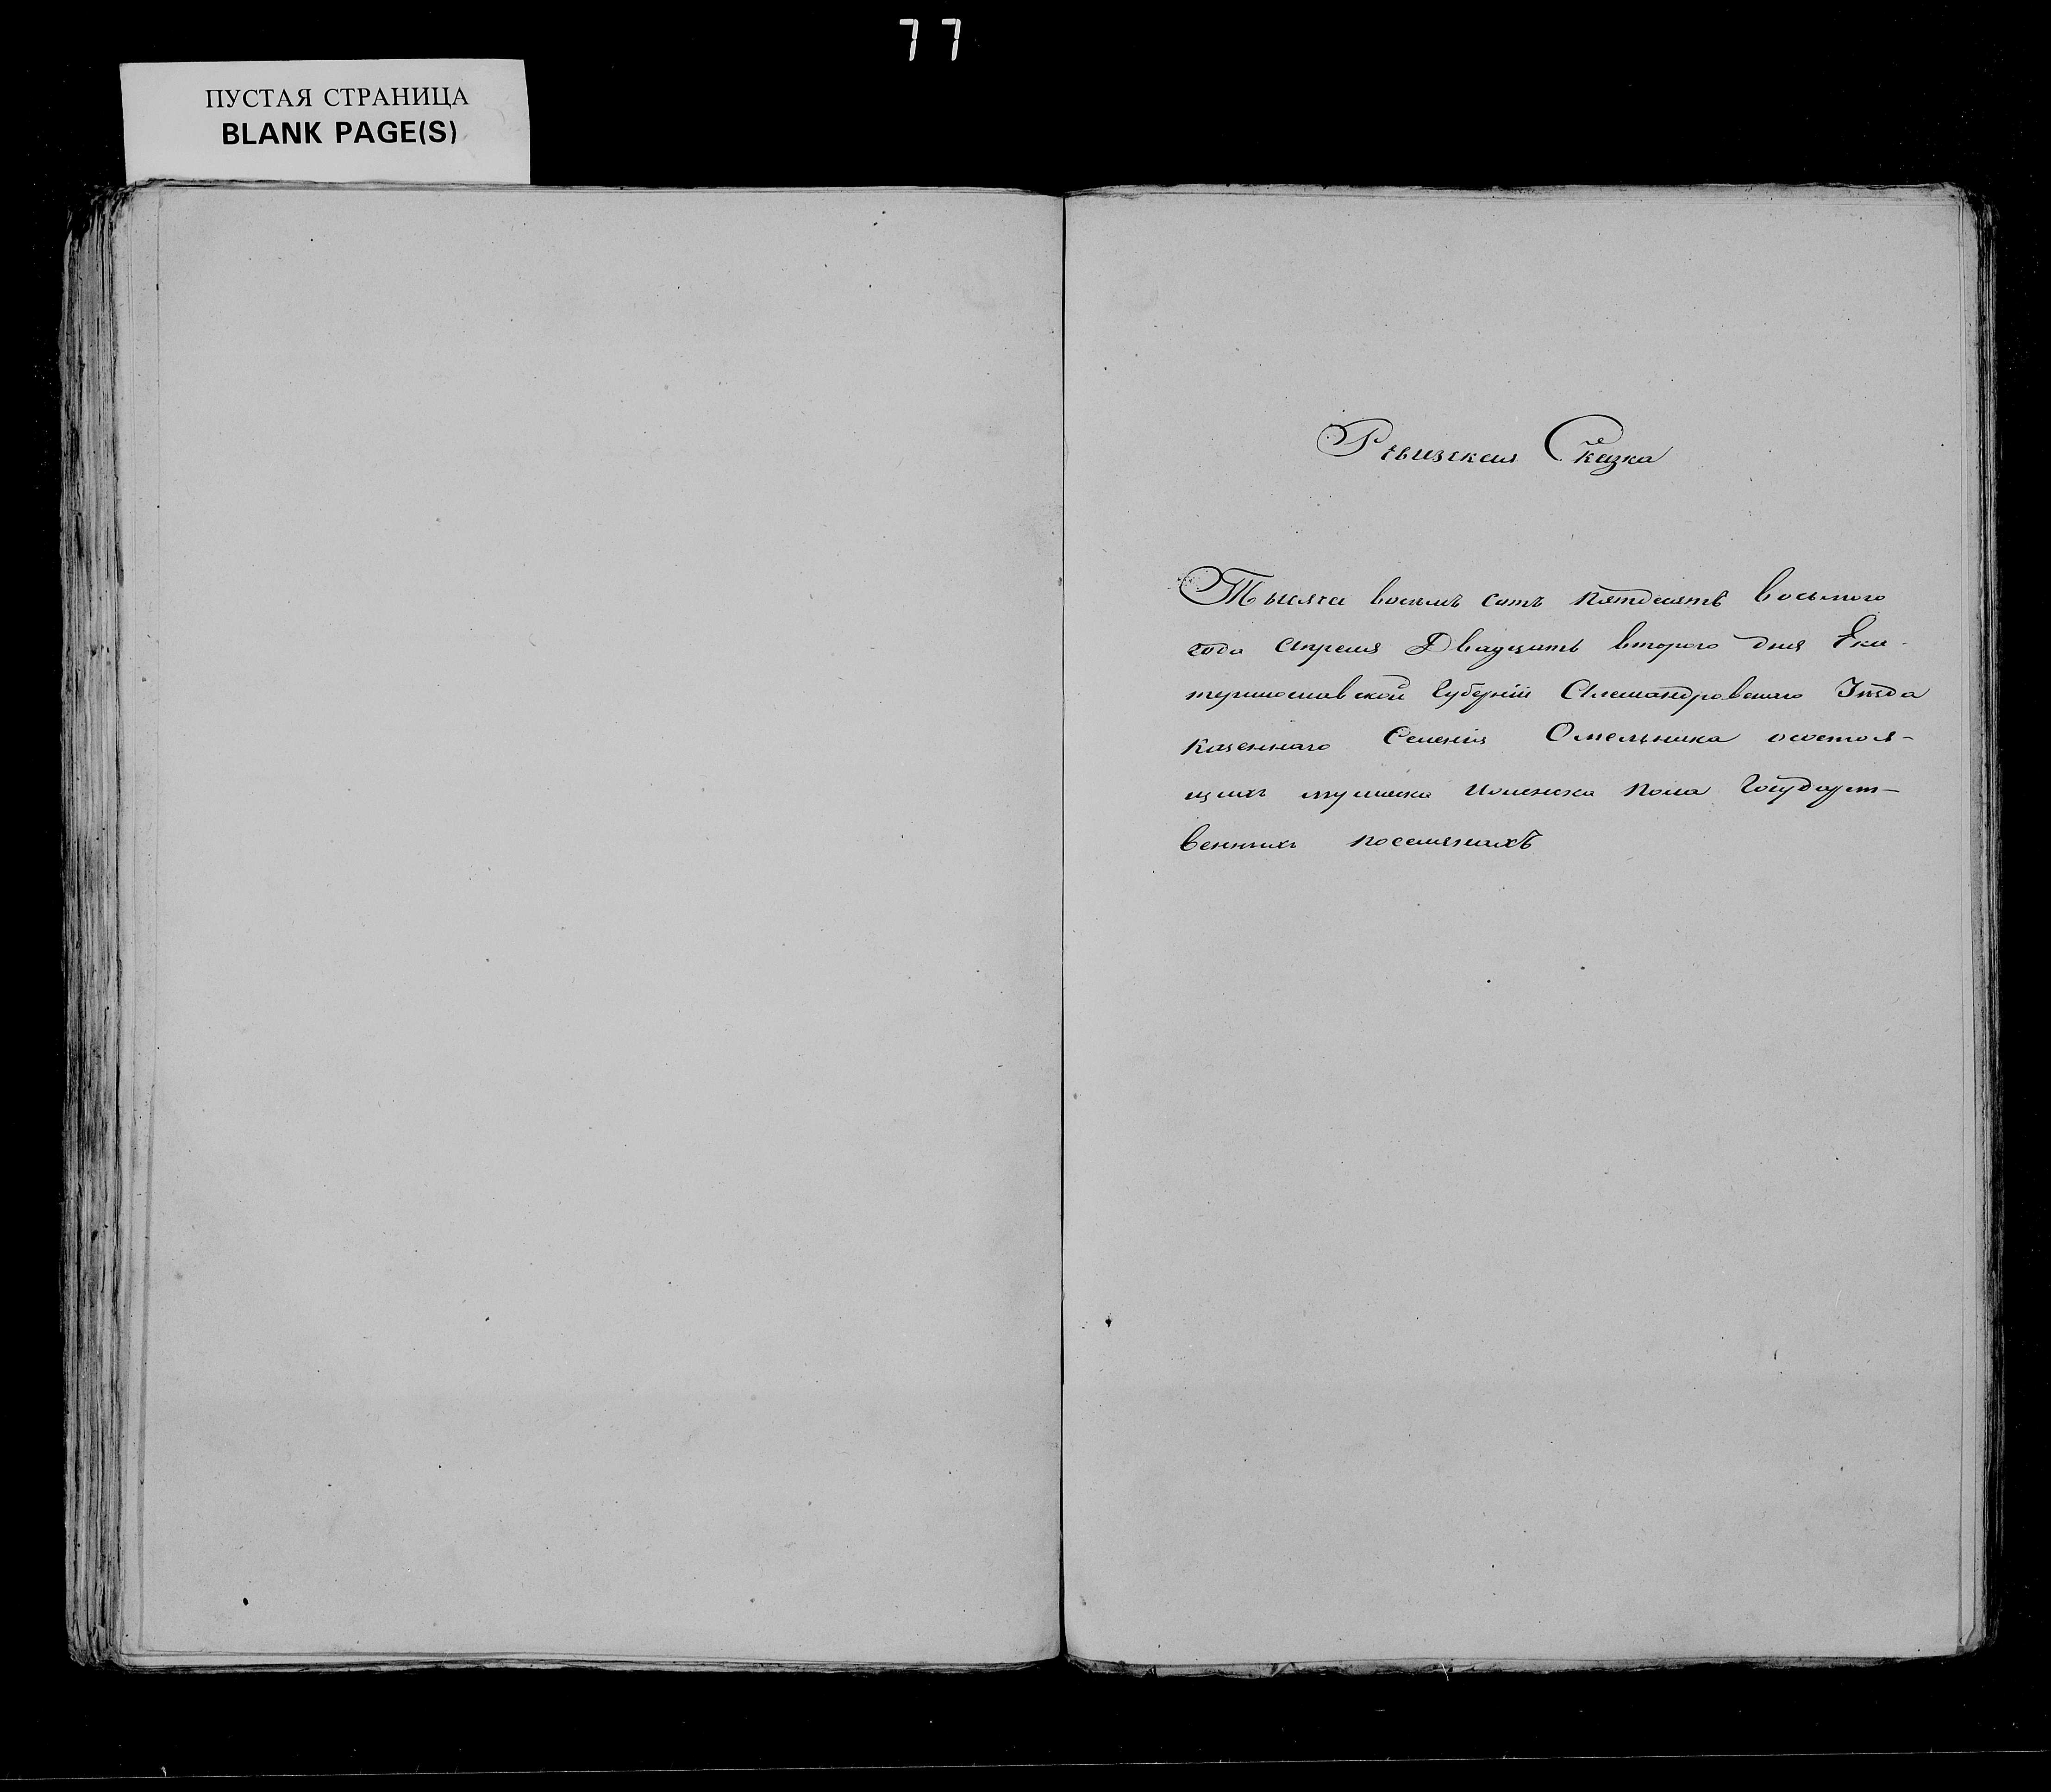 77
ПУСТАЯ СТРАНИЦА
BLANK PAGE(S)
Ревизская Сказка
Тысяча восемъ сотъ пятдесятъ восьмого
года апреля Двадцать второго дня Ека-
теринославской Губерніи Александровскаго Уезда
казеннаго Селенія Омельника осостоя-
щихъ мужеска иженска пола Государст-
венныхъ поселянахъ